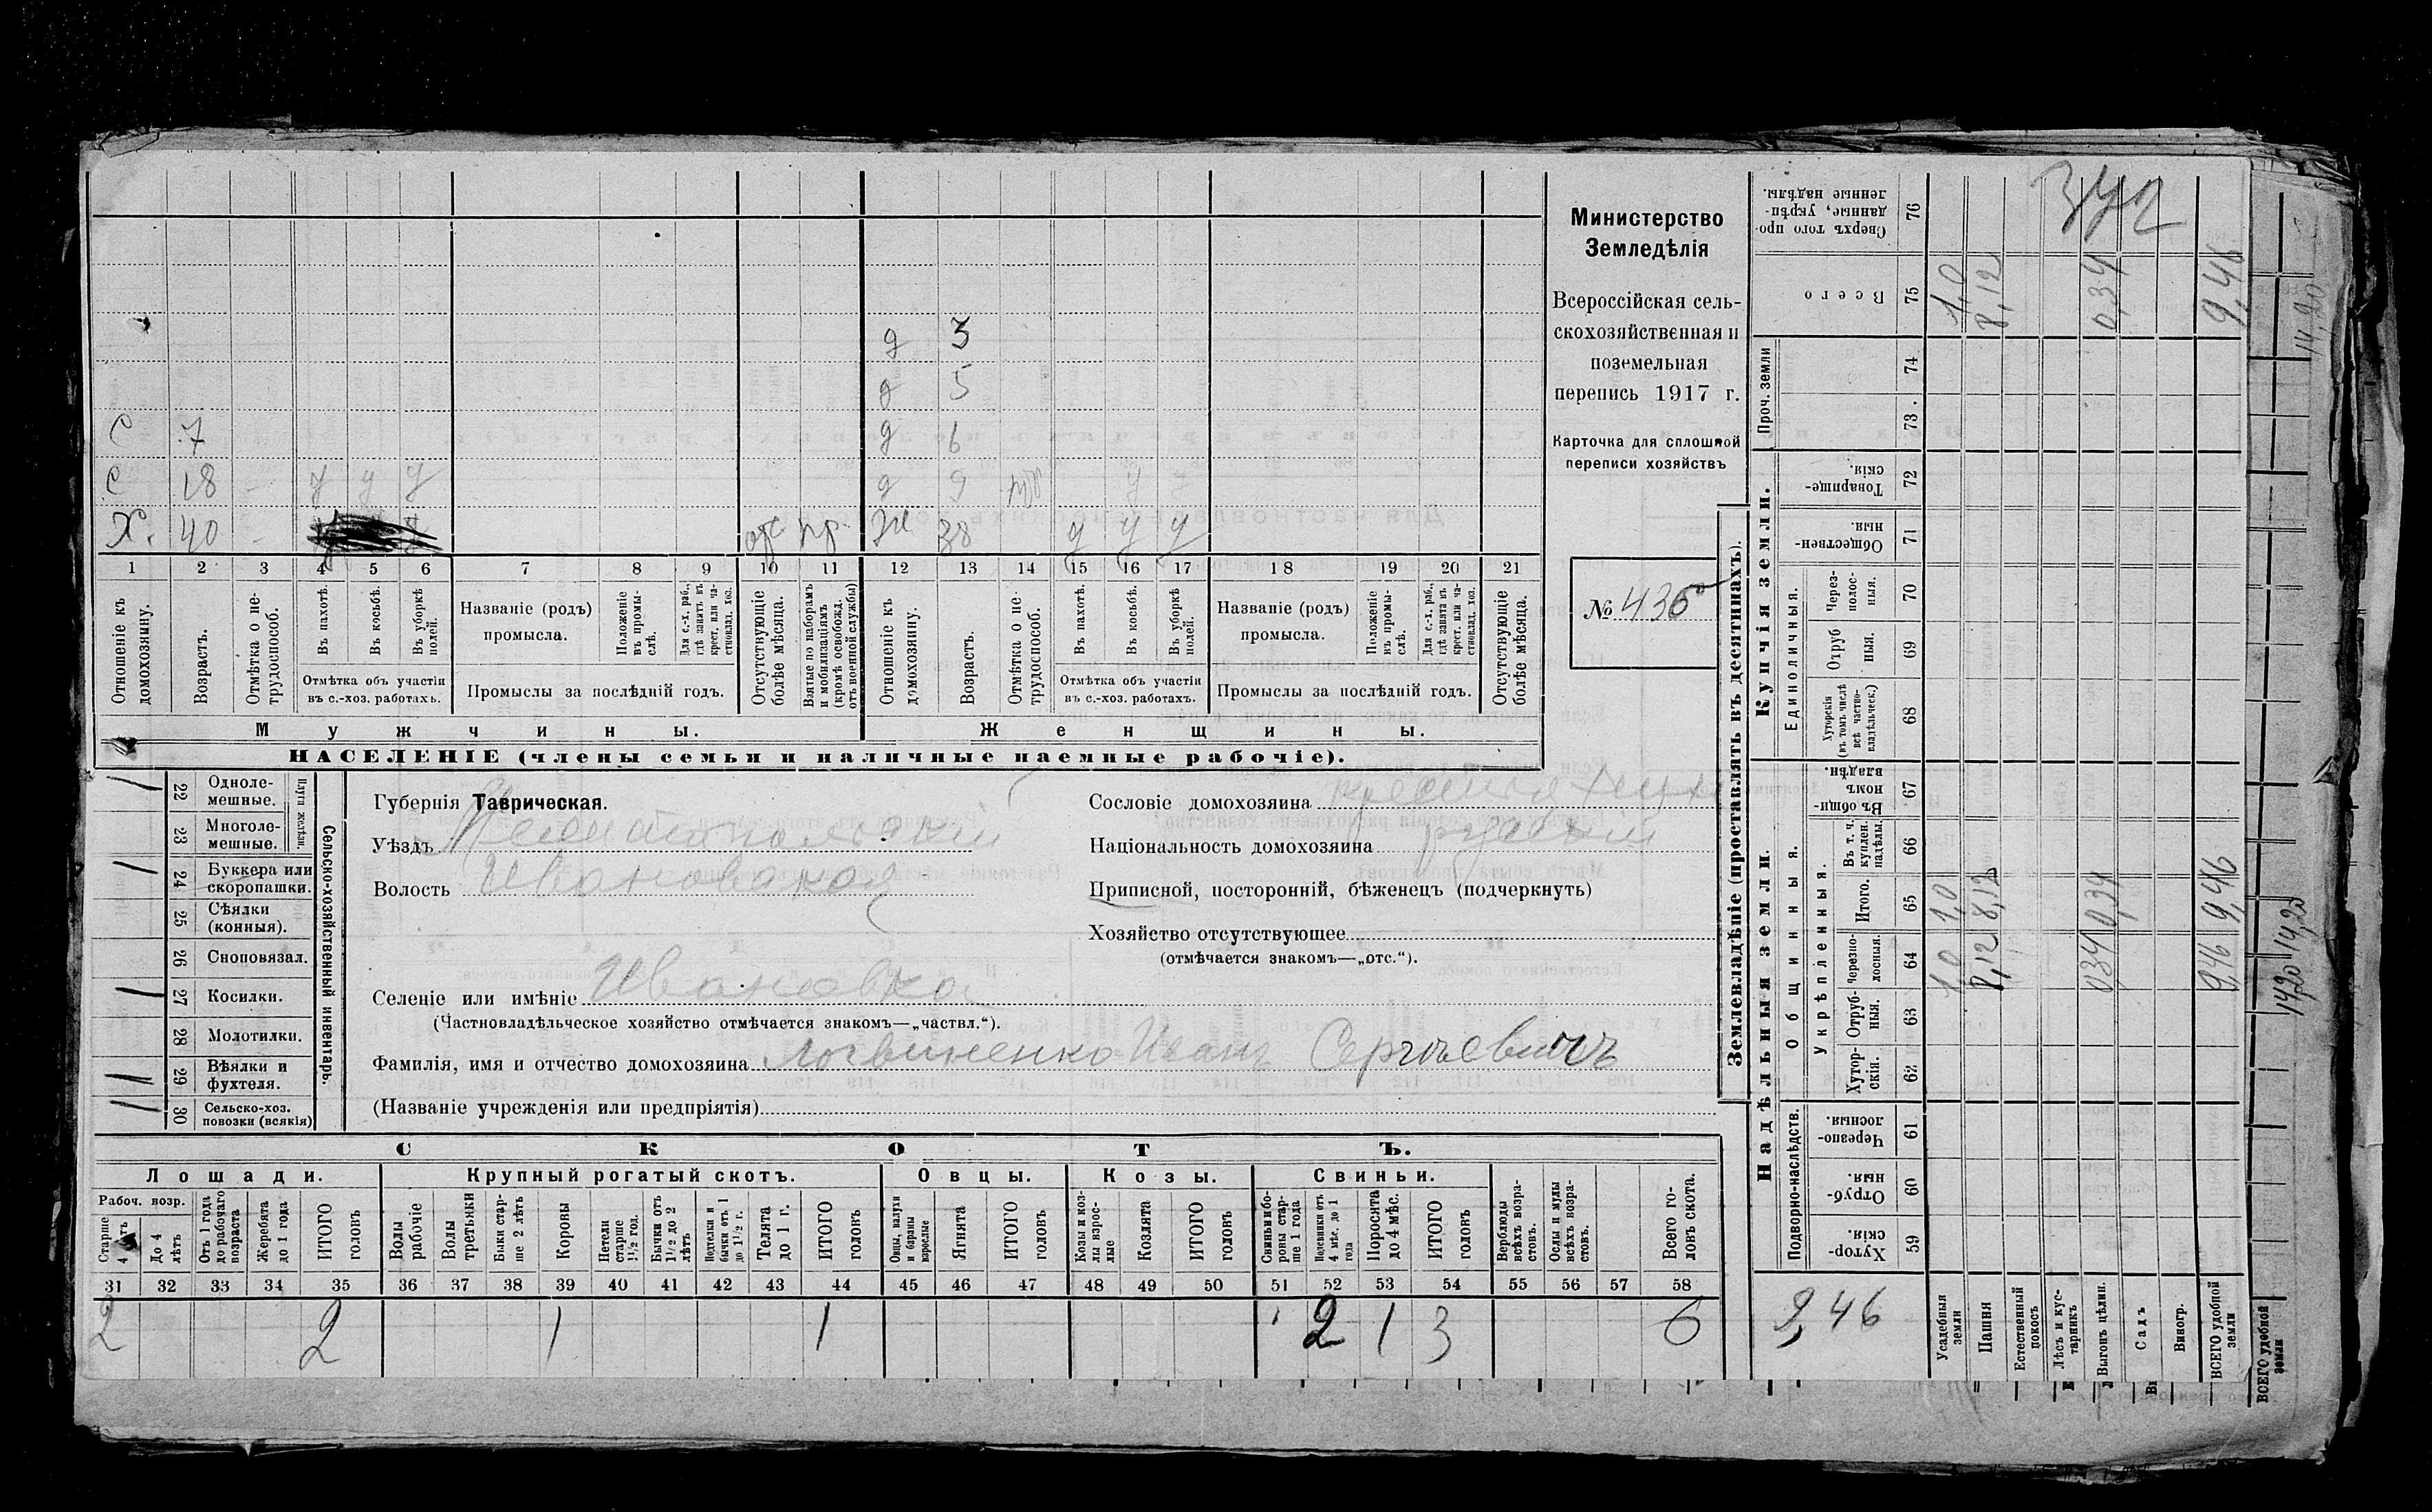 д 3
д 5
С 7 д 6
С 18 - у у у д 9 у
Х. 40 - отс пр. Ж 38 у у у
1 2 3 4 5 6 7 8 9 10 11 12 13 14 15 16 17 18 19 20 21
Отношеніе къ домохозяину.
Возрастъ.
Отмѣтка о нетрудоспособ.
Въ пахотѣ.
Въ косьбѣ.
Въ уборкѣ полей.
Отмѣтка объ участіи
въ с.-хоз. работахъ.
Названіе (родъ)
промысла.
Положеніе въ промыслѣ.
Для с.-х. раб., гдѣ занятъ въ крест. или частновлад. хоз.
Промыслы за послѣдній годъ.
Отсутствующіе болѣе мѣсяца.
Взятые по наборамъ и мобилизаціямъ (кромѣ освобожд. отъ военной службы)
Отношеніе къ домохозяину.
Возрастъ.
Отмѣтка о нетрудоспособ.
Въ пахотѣ.
Въ косьбѣ.
Въ уборкѣ полей.
Отмѣтка объ участіи
въ с.-хоз. работахъ.
Названіе (родъ)
промысла.
Положеніе въ промыслѣ.
Для с.-х. раб., гдѣ занята въ крест. или частновлад. хоз.
Промыслы за послѣдній годъ.
Отсутствующіе болѣе мѣсяца.
Мужчины. Женщины.
НАСЕЛЕНІЕ (члены семьи и наличные наемные рабочіе).
Министерство
Земледѣлія
Всероссійская сель-
скохозяйственная и
поземельная
перепись 1917 г.
Карточка для сплошной
переписи хозяйствъ
№ 436
22 Однолемешные.
23 Многолемешные.
Плуги желѣзн.
24 Буккера или скоропашки.
25 Сѣялки (конныя).
26 Сноповязал.
27 Косилки.
28 Молотилки.
29 Вѣялки и фухтеля.
30 Сельско-хоз. повозки (всякія)
Сельско-хозяйственный инвентарь.
Губернія Таврическая.
Уѣздъ Мелитопольскій
Волость Ивановская
Селеніе или имѣніе Ивановка
(Частновладѣльческое хозяйство отмѣчается знакомъ—„частвл.“).
Фамилія, имя и отчество домохозяина Логвиненко Иванъ Сергѣевичъ
(Названіе учрежденія или предпріятія)
Сословіе домохозяина
Національность домохозяина русскій
Приписной, посторонній, бѣженецъ (подчеркнуть)
Хозяйство отсутствующее
(отмѣчается знакомъ—„отс.“).
СКОТЪ.
Лошади. Крупный рогатый скотъ. Овцы. Козы. Свиньи.
Рабоч. возр.
Старше 4 лѣтъ
До 4 лѣтъ
Отъ 1 года до рабочаго возраста
Жеребята до 1 года
ИТОГО головъ
Волы рабочіе
Волы третьяки
Быки старше 2 лѣтъ
Коровы
Нетели старше 1½ год.
Бычки отъ 1½ до 2 лѣтъ
Подтелки и бычки отъ 1 до 1½ г.
Телята до 1 г.
ИТОГО головъ
Овцы, валухи и бараны взрослые
Ягнята
ИТОГО головъ
Козы и козлы взрослые
Козлята
ИТОГО головъ
Свиньи и боровы старше 1 года
Подсвинки отъ 4 мѣс. до 1 года
Поросята до 4 мѣс.
ИТОГО головъ
Верблюды всѣхъ возрастовъ.
Ослы и мулы всѣхъ возрастовъ.
Всего головъ скота.
31 32 33 34 35 36 37 38 39 40 41 42 43 44 45 46 47 48 49 50 51 52 53 54 55 56 57 58
2 2 1 1 2 1 3 6
Землевладѣніе (проставлять въ десятинахъ).
Надѣльныя земли.
Купчія земли.
Проч. земли
Подворно-наслѣдств.
Общинныя.
Укрѣпленныя.
Единоличныя.
59 Хуторскія.
60 Отрубныя.
61 Черезполосныя.
62 Хуторскія.
63 Отрубныя.
64 Черезполосныя.
65 Итого.
66 Въ т. ч. куплен. надѣлы.
67 Въ общинномъ владѣн.
68 Хуторскія (въ томъ числѣ всѣ частновладѣльческ.)
69 Отрубныя.
70 Черезполосныя.
71 Общественныя.
72 Товарищескія.
73.
74
75 Всего
76 Сверхъ того проданные, укрѣпленные надѣлы.
Усадебныя земли 1,0 1,0 1,0
Пашня 8,12 8,12 8,12
Естественный покосъ
Лѣсъ и кустарникъ
Выгонъ цѣлин. 0,34 0,34 0,34
Садъ
Виногр.
ВСЕГО удобной земли 9,46 9,46 9,46
9,46
372
ВСЕГО удобной земли 14,20 14,20 14,20